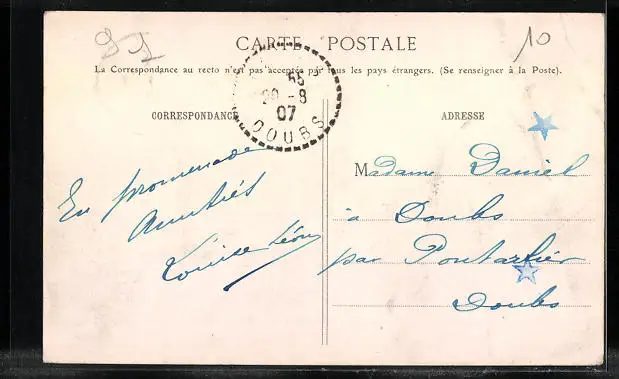 CARTE POSTALE
10
La Correspondance au recto n'est pas acceptée par tous les pays étrangers. (Se renseigner à la Poste).
55
29 - 8
07
DOUBS
CORRESPONDANCE
ADRESSE
En promenade
Amitiés
Louise Léon
Madame Daniel
à Doubs
par Pontarlier
Doubs